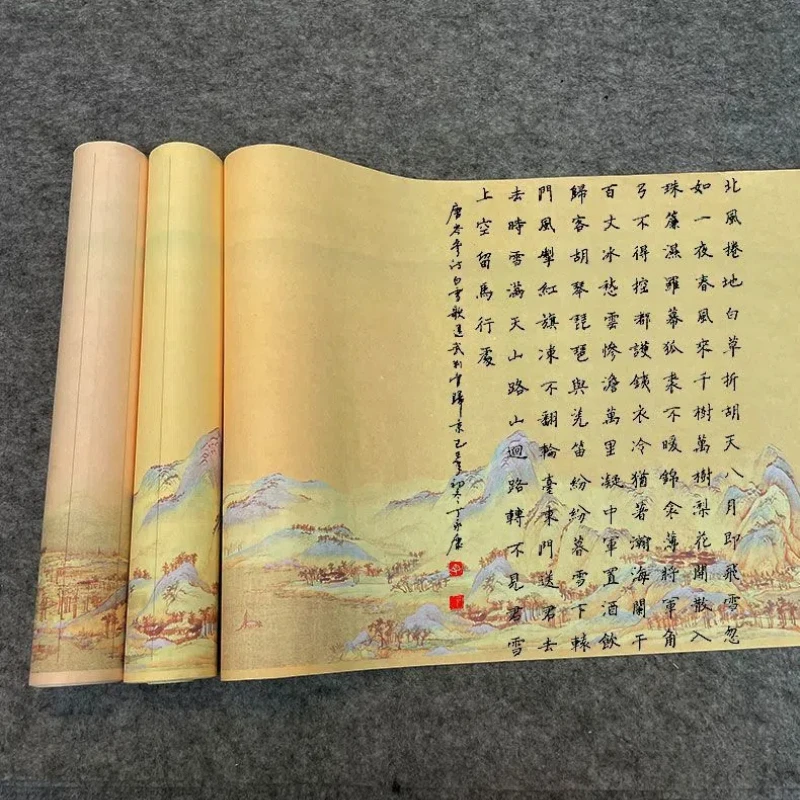 北風捲地白草折胡天八月即飛雪忽
如一夜春風來千樹萬樹梨花開散入
珠簾濕羅幕狐裘不暖錦衾薄將軍角
弓不得控都護鐵衣冷猶著瀚海闌干
百丈冰愁雲慘澹萬里凝中軍置酒飲
歸客胡琴琵琶與羌笛紛紛暮雪下轅
門風掣紅旗凍不翻輪臺東門送君去
去時雪滿天山路山迴路轉不見君雪
上空留馬行處
唐岑參詩白雪歌送武判官歸京己亥初冬